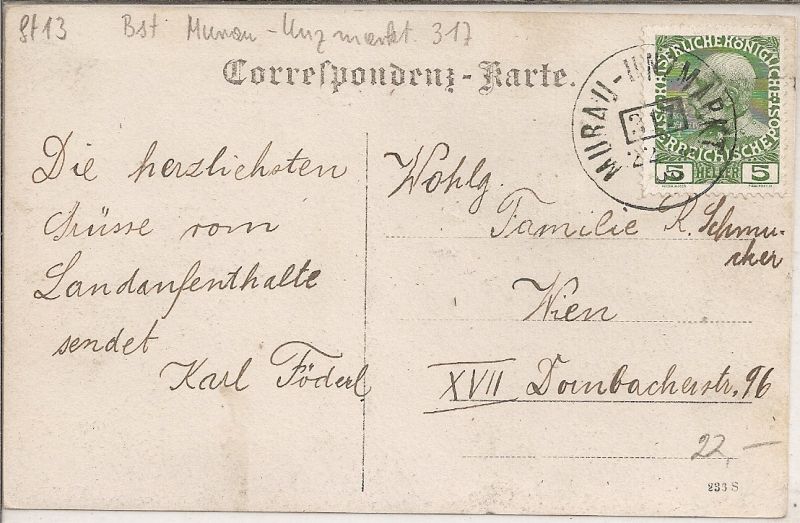 St 13 Bst Murau-Unzmarkt 317
Correspondenz-Karte.
MURAU-UNZMARKT
317
KAISERLICHE KÖNIGLICHE
ÖSTERREICHISCHE
5 HELLER 5
Die herzlichsten
Grüsse vom
Landaufenthalte
sendet
Karl Föderl
Wohlg.
Familie R. Schmu-
cher
Wien
XVII Dornbacherstr. 96
22,-
233 S